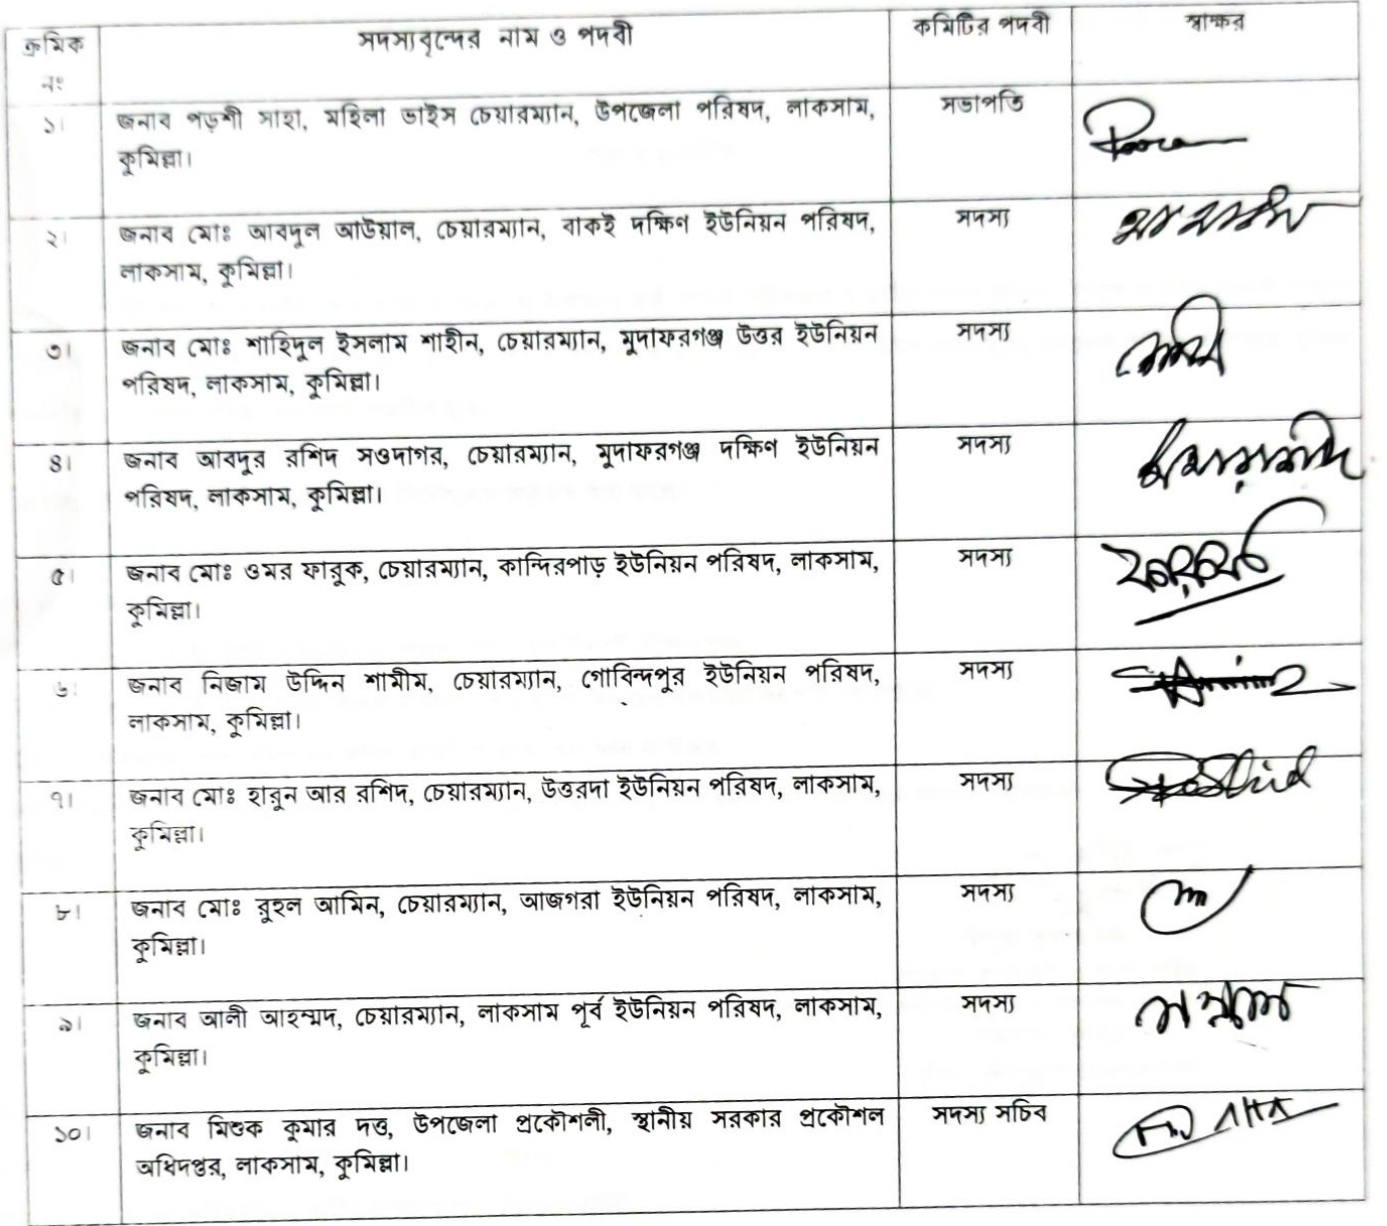 ক্রমিক নং সদস্যবৃন্দের নাম ও পদবী কমিটির পদবী স্বাক্ষর
১। জনাব পড়শী সাহা, মহিলা ভাইস চেয়ারম্যান, উপজেলা পরিষদ, লাকসাম, সভাপতি
কুমিল্লা।
২। জনাব মোঃ আবদুল আউয়াল, চেয়ারম্যান, বাকই দক্ষিণ ইউনিয়ন পরিষদ, সদস্য
লাকসাম, কুমিল্লা।
৩। জনাব মোঃ শাহিদুল ইসলাম শাহীন, চেয়ারম্যান, মুদাফরগঞ্জ উত্তর ইউনিয়ন সদস্য
পরিষদ, লাকসাম, কুমিল্লা।
৪। জনাব আবদুর রশিদ সওদাগর, চেয়ারম্যান, মুদাফরগঞ্জ দক্ষিণ ইউনিয়ন সদস্য
পরিষদ, লাকসাম, কুমিল্লা।
৫। জনাব মোঃ ওমর ফারুক, চেয়ারম্যান, কান্দিরপাড় ইউনিয়ন পরিষদ, লাকসাম, সদস্য
কুমিল্লা।
৬। জনাব নিজাম উদ্দিন শামীম, চেয়ারম্যান, গোবিন্দপুর ইউনিয়ন পরিষদ, সদস্য
লাকসাম, কুমিল্লা।
৭। জনাব মোঃ হারুন আর রশিদ, চেয়ারম্যান, উত্তরদা ইউনিয়ন পরিষদ, লাকসাম, সদস্য
কুমিল্লা।
৮। জনাব মোঃ রুহুল আমিন, চেয়ারম্যান, আজগরা ইউনিয়ন পরিষদ, লাকসাম, সদস্য
কুমিল্লা।
৯। জনাব আলী আহম্মদ, চেয়ারম্যান, লাকসাম পূর্ব ইউনিয়ন পরিষদ, লাকসাম, সদস্য
কুমিল্লা।
১০। জনাব মিশুক কুমার দত্ত, উপজেলা প্রকৌশলী, স্থানীয় সরকার প্রকৌশল সদস্য সচিব
অধিদপ্তর, লাকসাম, কুমিল্লা।